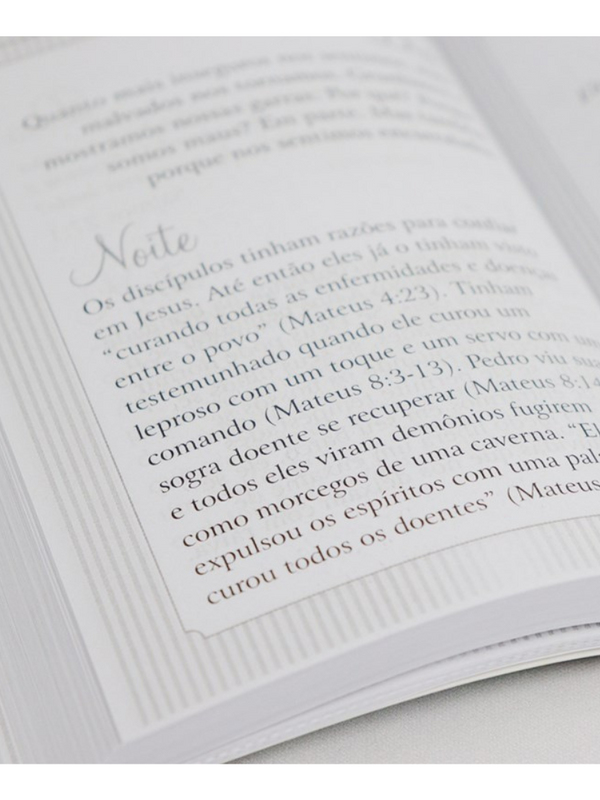 Quanto mais inseguros nos
malvados nos tornamos.
mostramos nossas garras. Por quê?
somos maus? Em parte. Mas
porque nos sentimos
Noite
Os discípulos tinham razões para confiar
em Jesus. Até então eles já o tinham visto
“curando todas as enfermidades e doenças
entre o povo” (Mateus 4:23). Tinham
testemunhado quando ele curou um
leproso com um toque e um servo com um
comando (Mateus 8:3-13). Pedro viu sua
sogra doente se recuperar (Mateus 8:14
e todos eles viram demônios fugirem
como morcegos de uma caverna. “El
expulsou os espíritos com uma pala
curou todos os doentes” (Mateus